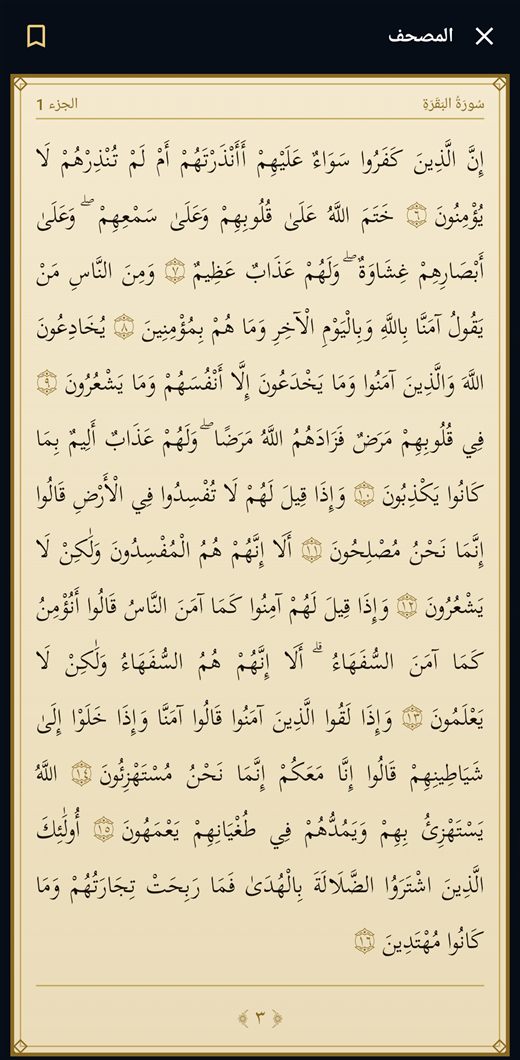 المصحف
سُورَةُ البَقَرَةِ
الجزء 1
إِنَّ الَّذِينَ كَفَرُوا سَوَاءٌ عَلَيْهِمْ أَأَنْذَرْتَهُمْ أَمْ لَمْ تُنْذِرْهُمْ لَا
يُؤْمِنُونَ ٦ خَتَمَ اللَّهُ عَلَىٰ قُلُوبِهِمْ وَعَلَىٰ سَمْعِهِمْ ۖ وَعَلَىٰ
أَبْصَارِهِمْ غِشَاوَةٌ ۖ وَلَهُمْ عَذَابٌ عَظِيمٌ ٧ وَمِنَ النَّاسِ مَنْ
يَقُولُ آمَنَّا بِاللَّهِ وَبِالْيَوْمِ الْآخِرِ وَمَا هُمْ بِمُؤْمِنِينَ ٨ يُخَادِعُونَ
اللَّهَ وَالَّذِينَ آمَنُوا وَمَا يَخْدَعُونَ إِلَّا أَنْفُسَهُمْ وَمَا يَشْعُرُونَ ٩
فِي قُلُوبِهِمْ مَرَضٌ فَزَادَهُمُ اللَّهُ مَرَضًا ۖ وَلَهُمْ عَذَابٌ أَلِيمٌ بِمَا
كَانُوا يَكْذِبُونَ ١٠ وَإِذَا قِيلَ لَهُمْ لَا تُفْسِدُوا فِي الْأَرْضِ قَالُوا
إِنَّمَا نَحْنُ مُصْلِحُونَ ١١ أَلَا إِنَّهُمْ هُمُ الْمُفْسِدُونَ وَلَٰكِنْ لَا
يَشْعُرُونَ ١٢ وَإِذَا قِيلَ لَهُمْ آمِنُوا كَمَا آمَنَ النَّاسُ قَالُوا أَنُؤْمِنُ
كَمَا آمَنَ السُّفَهَاءُ ۗ أَلَا إِنَّهُمْ هُمُ السُّفَهَاءُ وَلَٰكِنْ لَا
يَعْلَمُونَ ١٣ وَإِذَا لَقُوا الَّذِينَ آمَنُوا قَالُوا آمَنَّا وَإِذَا خَلَوْا إِلَىٰ
شَيَاطِينِهِمْ قَالُوا إِنَّا مَعَكُمْ إِنَّمَا نَحْنُ مُسْتَهْزِئُونَ ١٤ اللَّهُ
يَسْتَهْزِئُ بِهِمْ وَيَمُدُّهُمْ فِي طُغْيَانِهِمْ يَعْمَهُونَ ١٥ أُولَٰئِكَ
الَّذِينَ اشْتَرَوُا الضَّلَالَةَ بِالْهُدَىٰ فَمَا رَبِحَتْ تِجَارَتُهُمْ وَمَا
كَانُوا مُهْتَدِينَ ١٦
﴿ ٣ ﴾